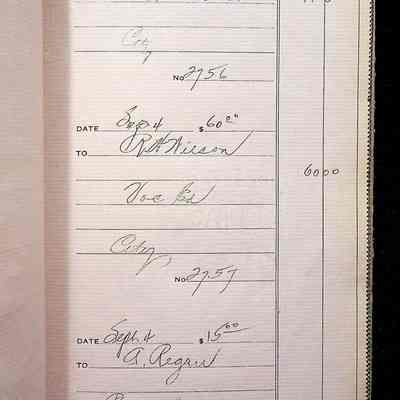 City
No 2756
DATE Sep 4 $60 00
TO R H Wilson
6000
Voc Ed
City,
No 2757
DATE Sept. 4 $15 00
TO A.